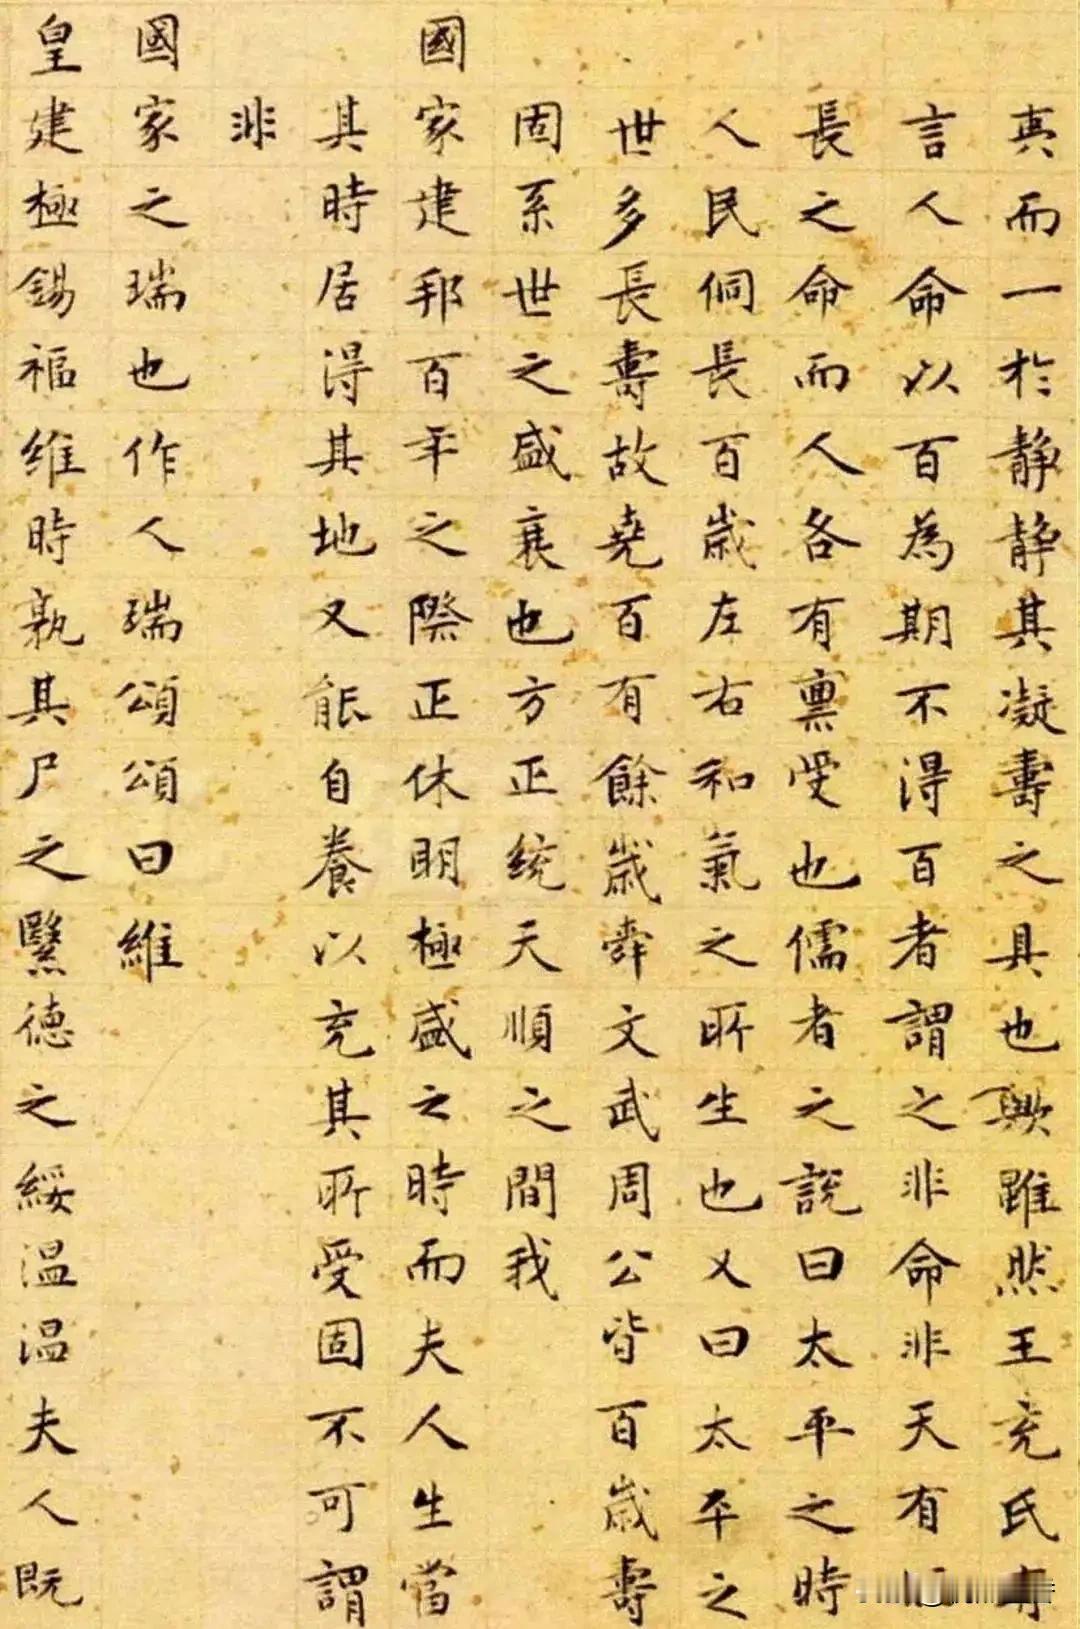 真而一於静静其凝壽之具也歟雖然王充氏
言人命以百為期不得百者謂之非命非天有
長之命而人各有稟受也儒者之說曰太平之時
人民侗長百歲左右和氣之所生也又曰太平之
世多長壽故堯百有餘歲舜文武周公皆百歲壽
固系世之盛衰也方正統天順之間我
國家建邦百年之際正休明極盛之時而夫人生當
其時居得其地又能自養以充其所受固不可謂
非
國家之瑞也作人瑞頌頌曰維
皇建極錫福維時孰其尸之繄德之綏温温夫人既